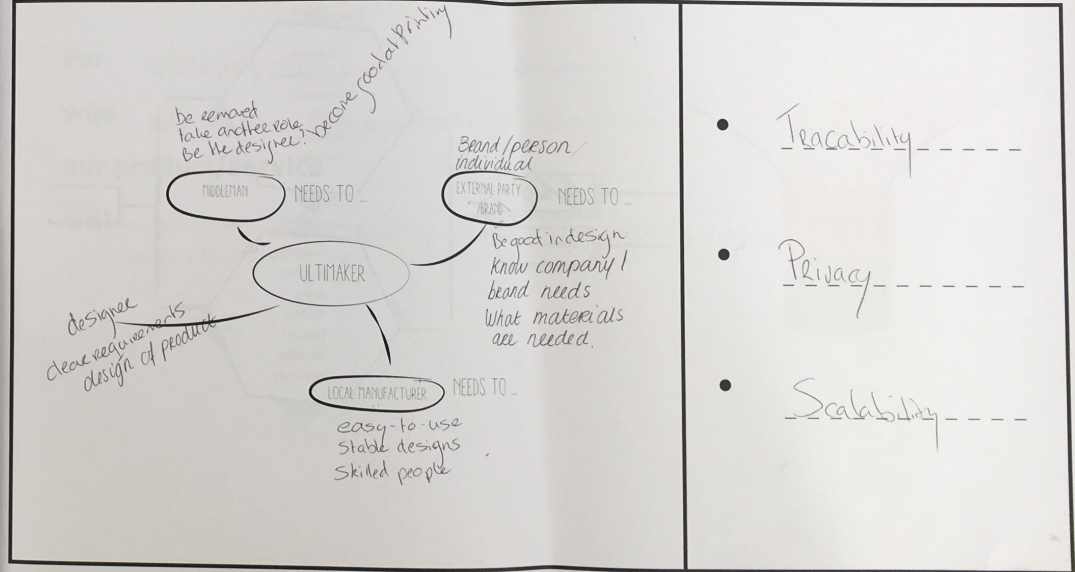 be removed
take another role
Be the designer?
become good at printing
MIDDLEMAN
NEEDS TO ...
Brand/person
individual
EXTERNAL PARTY
/BRAND
NEEDS TO ...
Be good in design
Know company /
brand needs
What materials
are needed.
ULTIMAKER
designer
clear requirements
design of product
LOCAL MANUFACTURER
NEEDS TO ...
easy-to-use
Stable designs
Skilled people
Tracability
Privacy
Scalability